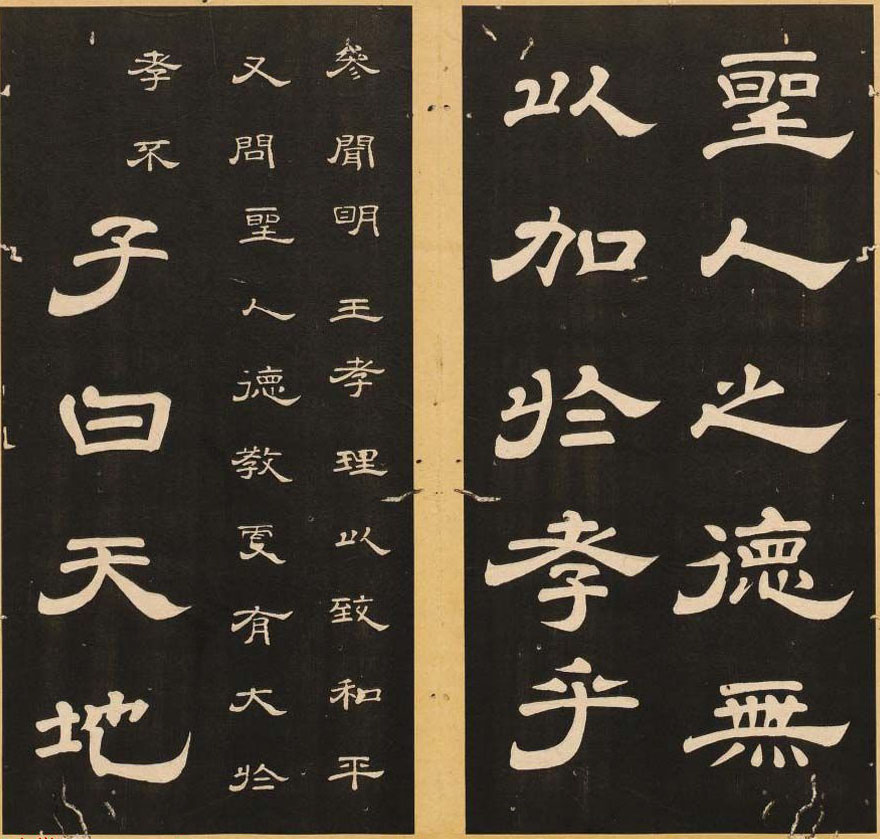 聖人之德無
以加於孝乎
參聞明王孝理以致和平
又問聖人德教更有大於
孝不子曰天地